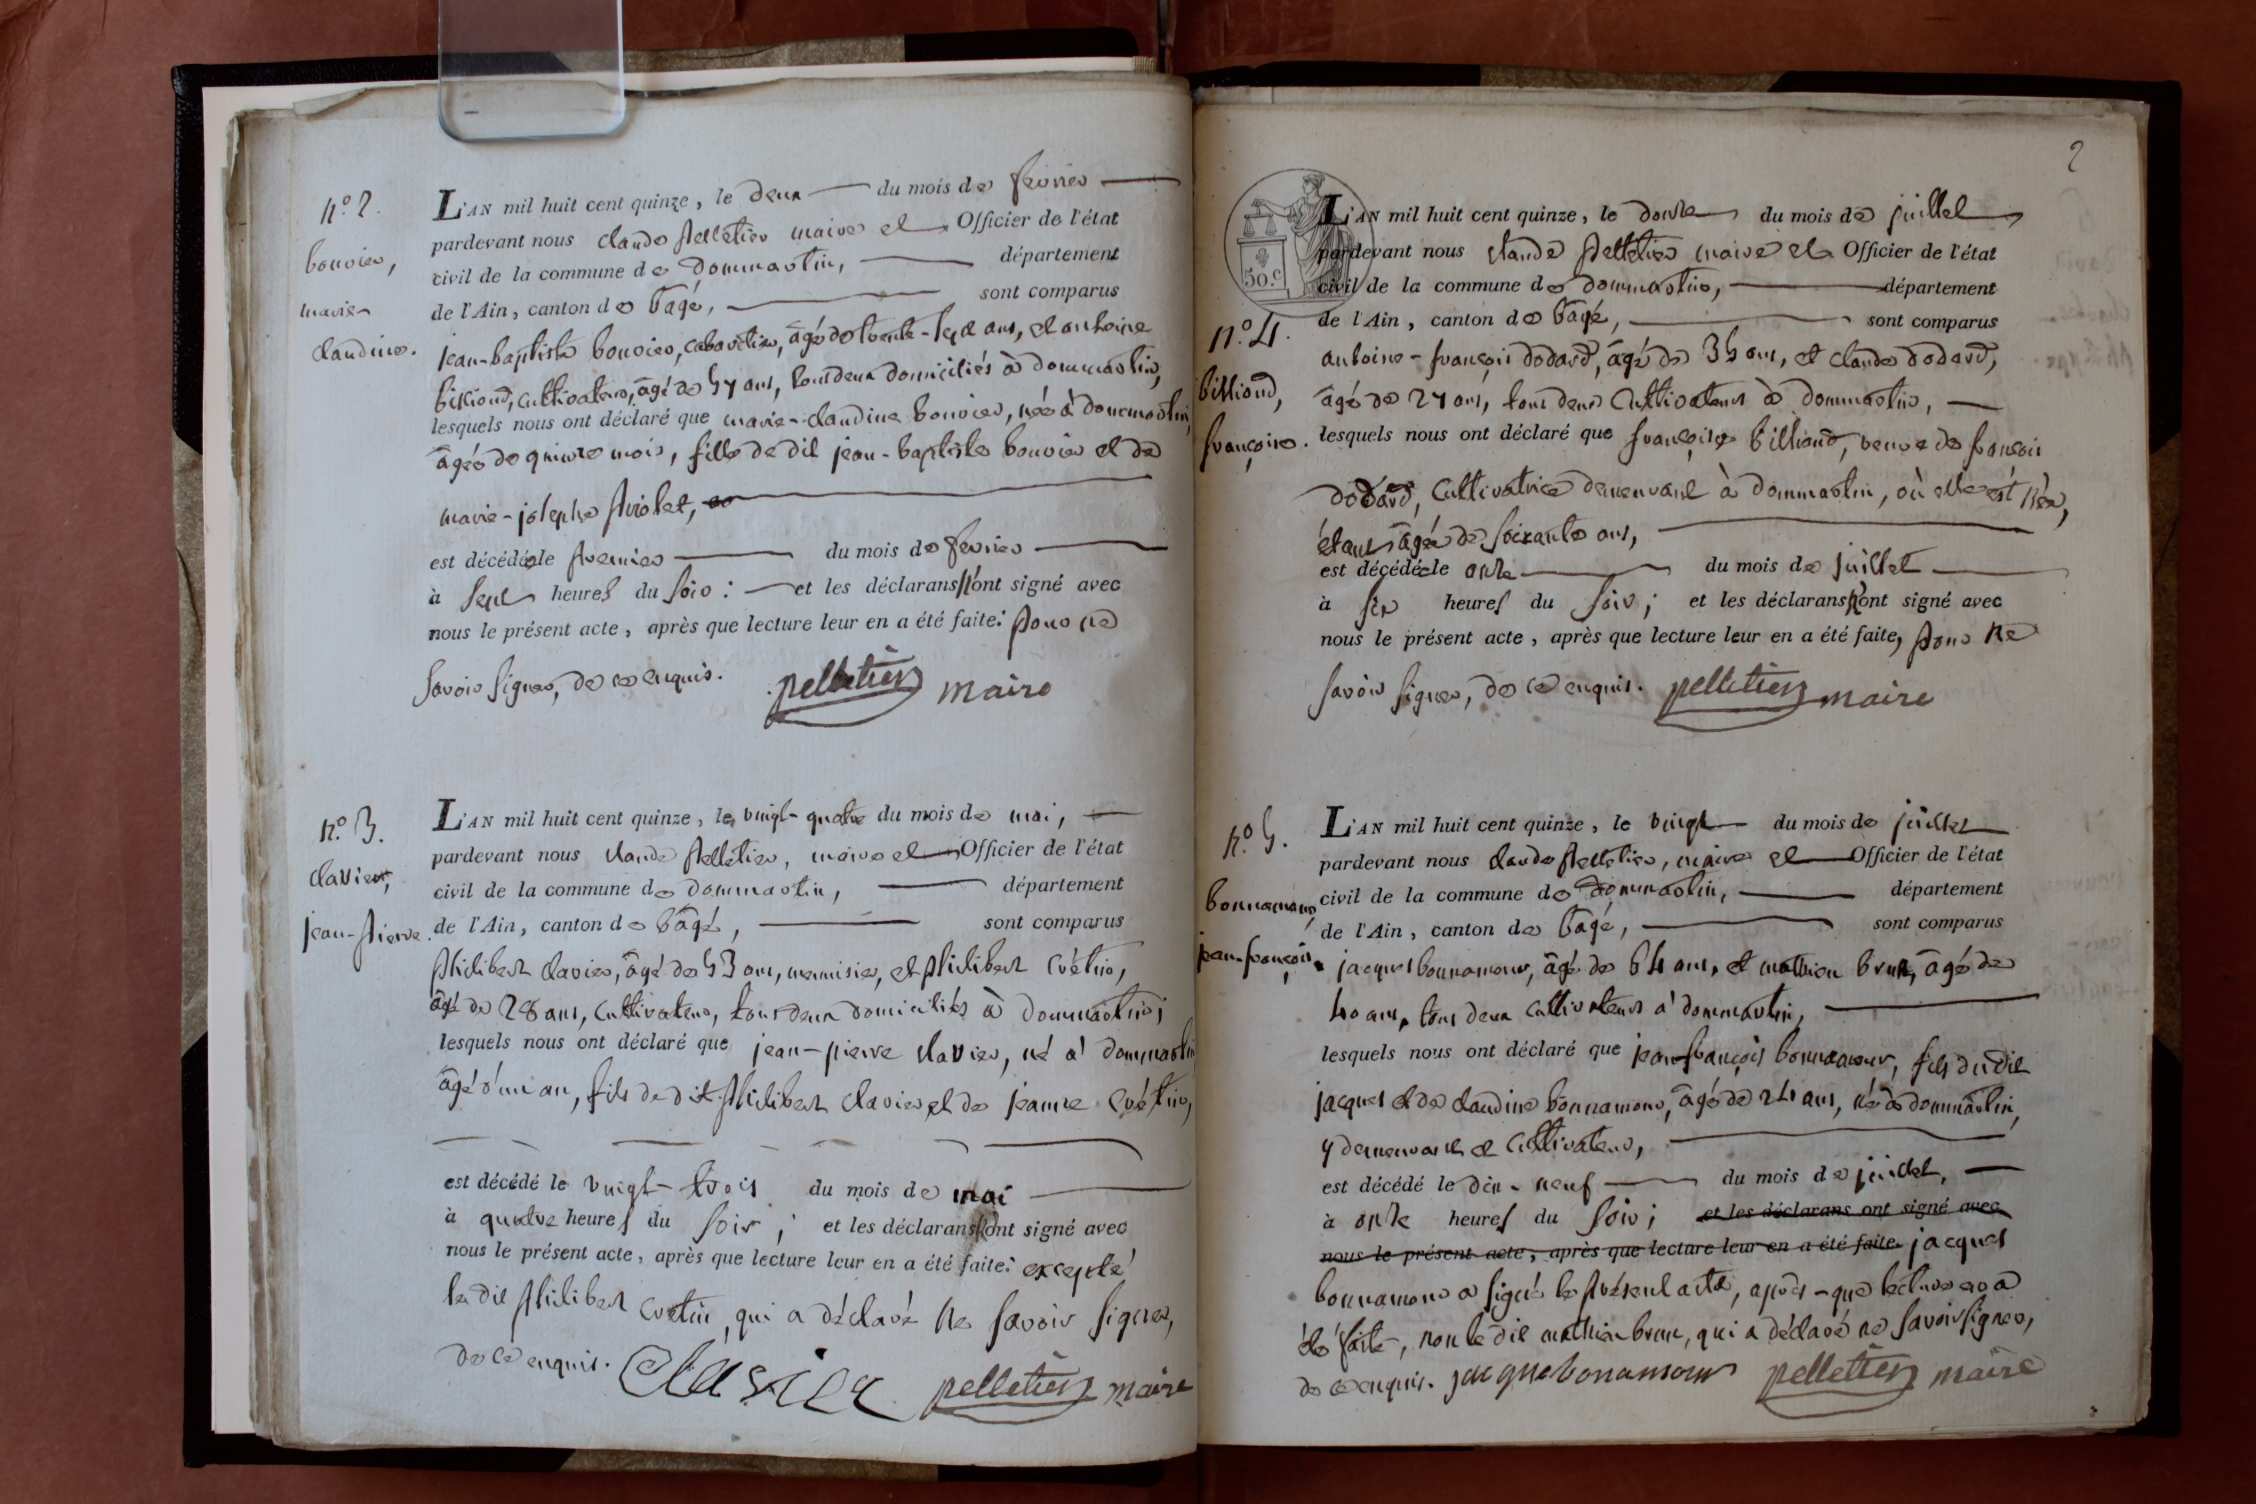 n.° 2.
bouvier,
marie-
claudine.
L'AN mil huit cent quinze, le deux du mois de fevrier
pardevant nous claude pelletier maire et Officier de l'état
civil de la commune de dommartin, département
de l'Ain, canton de bâgé, sont comparus
jean-baptiste bouvier, cabaretier, âgé de trente-sept ans, et antoine
billioud, cultivateur, âgé de 57 ans, tous deux domiciliés à dommartin,
lesquels nous ont déclaré que marie-claudine bouvier, née à dommartin,
âgée de quinze mois, fille de dit jean-baptiste bouvier et de
marie-josephe
est décédée le premier du mois de fevrier
à sept heures du soir : et les déclarans n'ont signé avec
nous le présent acte, après que lecture leur en a été faite: pour ne
savoir signer, de ce enquis. pelletier maire
n.° 3.
clavier,
jean-pierre.
L'AN mil huit cent quinze, le vingt-quatre du mois de mai,
pardevant nous claude pelletier, maire et Officier de l'état
civil de la commune de dommartin, département
de l'Ain, canton de bâgé, sont comparus
philibert clavier, âgé de 53 ans, menuisier, et philibert crétin,
âgé de 28 ans, cultivateur, tous deux domiciliés à dommartin;
lesquels nous ont déclaré que jean-pierre clavier, né à dommartin
âgé d'un an, fils de dit philibert clavier et de jeanne crétin,
est décédé le vingt-trois du mois de mai
à quatre heures du soir; et les déclarans ont signé avec
nous le présent acte, après que lecture leur en a été faite: excepté
le dit philibert cretin, qui a déclaré ne savoir signer,
de ce enquis. Clavier pelletier maire
2
50.c
n.° 4.
billioud,
françoise.
L'AN mil huit cent quinze, le douze du mois de juillet
pardevant nous claude pelletier maire et Officier de l'état
civil de la commune de dommartin, département
de l'Ain, canton de bâgé, sont comparus
antoine-françois dodard, âgé de 35 ans, et claude dodard,
âgé de 27 ans, tous deux cultivateurs à dommartin,
lesquels nous ont déclaré que françoise billioud, veuve de françois
dodard, cultivatrice demeurant à dommartin, où elle est née,
étant âgée de soixante ans,
est décédée le onze du mois de juillet
à six heures du soir; et les déclarans n'ont signé avec
nous le présent acte, après que lecture leur en a été faite, pour ne
savoir signer, de ce enquis. pelletier maire
n.° 5.
bonnamour,
jean-françois.
L'AN mil huit cent quinze, le vingt du mois de juillet
pardevant nous claude pelletier, maire et Officier de l'état
civil de la commune de dommartin, département
de l'Ain, canton de bâgé, sont comparus
jacques bonnamour, âgé de 64 ans, et mathieu brun, âgé de
40 ans, tous deux cultivateurs à dommartin,
lesquels nous ont déclaré que jean-françois bonnamour, fils du dit
jacques et de claudine bonnamour, âgé de 24 ans, né à dommartin,
y demeurant et cultivateur,
est décédé le dix-neuf du mois de juillet,
à onze heures du soir; et les déclarans ont signé avec
nous le présent acte, après que lecture leur en a été faite. jacques
bonnamour a signé le présent acte, après-que lecture en a
été faite, non le dit mathieu brun, qui a déclaré ne savoir signer,
de ce enquis. jacque bonamour pelletier maire